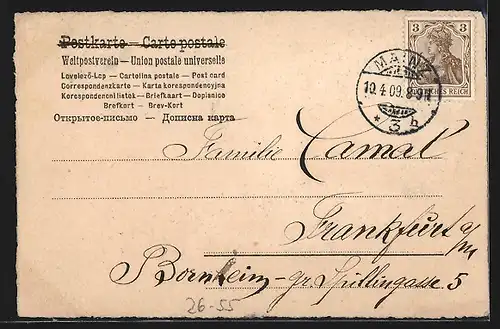 Postkarte — Carte postale
Weltpostverein — Union postale universelle
Levelező-Lap — Cartolina postale — Post card
Correspondenzkarte — Karta korespondencyjna
Korespondenční lístek — Briefkaart — Dopisnice
Brefkort — Brev-Kort
Открытое-письмо — Дописна карта
3 3
DEUTSCHES REICH
MAINZ
10.4.09. 8-9N
* 3 h
Familie Camal
Frankfurt a/m
Bornheim-gr. Spillingasse 5
26-55